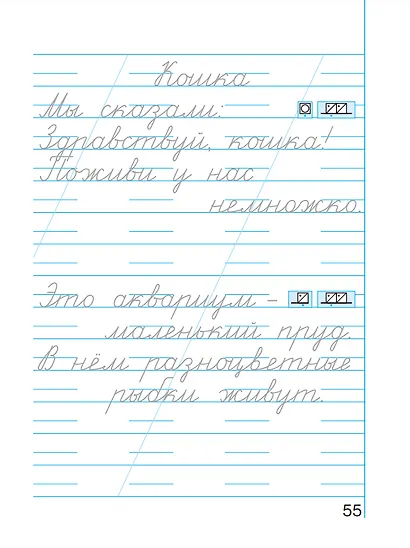 Кошка
Мы сказали:
Здравствуй, кошка!
Поживи у нас
немножко.
Это аквариум –
маленький пруд.
В нём разноцветные
рыбки живут.
55